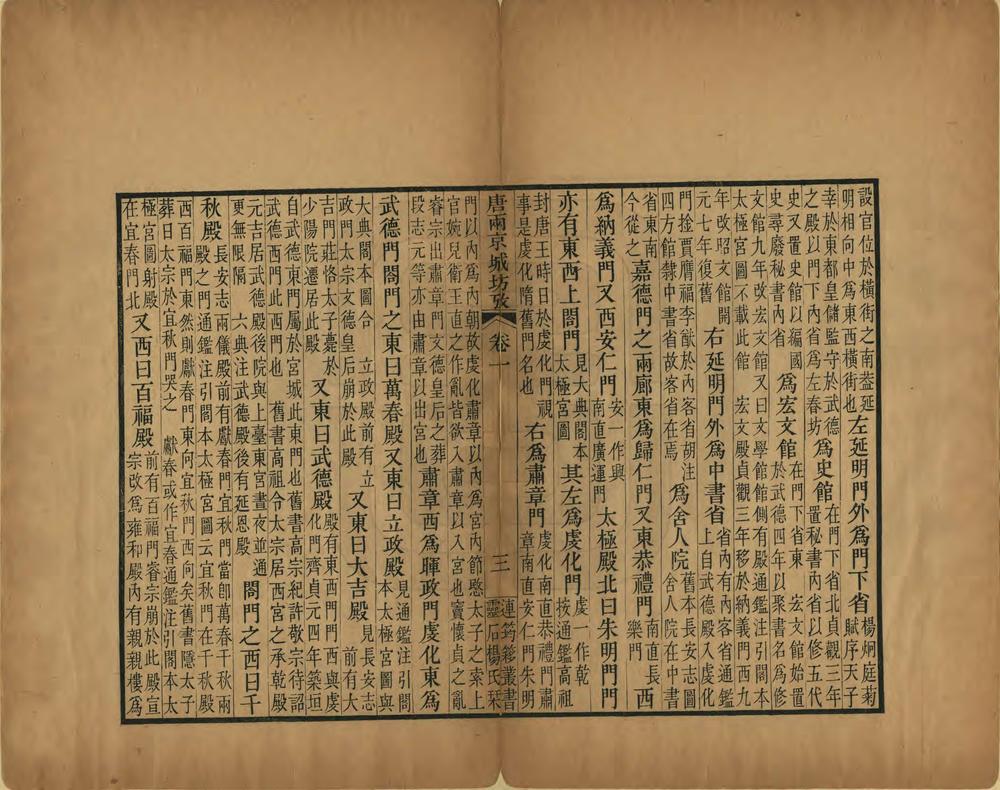 設官位於橫街之南蓋延
明相向中爲東西橫街也
左延明門外爲門下省
楊炯庭菊
賦序天子
幸於東都皇儲監守於武德
之殿以門下內省爲左春坊
爲史館
在門下省北貞觀三年
置秘書內省以修五代
史又置史館以編國
史尋廢秘書內省
爲宏文館
在門下省東 宏文館始置
於武德四年以聚書名爲修
文館九年改宏文館又曰文學館館側有殿通鑑注引閣本
太極宮圖不載此館 宏文殿貞觀三年移於納義門西九
年改昭文館開
元七年復舊
右延明門外爲中書省
省內有內客省通鑑
上自武德殿入虔化
門捡賈膺福李猷於內客省胡注
四方館隸中書省故客省在焉
爲舍人院
舊本長安志圖
舍人院在中書
省東南
今從之
嘉德門之兩廊東爲歸仁門又東恭禮門
南直長
樂門
西
爲納義門又西安仁門
安一作興
南直廣運門
太極殿北曰朱明門門
亦有東西上閤門
見大典閣本
太極宮圖
其左爲虔化門
虔一作乾
按通鑑高祖
封唐王時日於虔化門視
事是虔化隋舊門名也
右爲肅章門
虔化南直恭禮門肅
章南直安仁門朱明
唐兩京城坊攷 卷一 三
連筠簃叢書
靈石楊氏栞
門以內爲內朝故虔化肅章以內爲宮內節愍太子之案上
官婉兒衛王直之作亂皆欲入肅章以入宮也竇懷貞之亂
睿宗出肅章門文德皇后之葬
段志元等亦由肅章以出宮也
肅章西爲暉政門虔化東爲
武德門閤門之東曰萬春殿又東曰立政殿
見通鑑注引閣
本太極宮圖與
大典閣本圖合 立政殿前有立
政門太宗文德皇后崩於此殿
又東曰大吉殿
見長安志
前有大
吉門莊恪太子薨於
少陽院遷居此殿
又東曰武德殿
殿有東西門門西與虔
化門齊貞元四年築垣
自武德東門屬於宮城此東門也舊書高宗紀許敬宗待詔
武德西門此西門也 舊書高祖令太宗居西宮之承乾殿
元吉居武德殿後院與上臺東宮晝夜並通
更無限隔 六典注武德殿後有延恩殿
閤門之西曰千
秋殿
長安志兩儀殿前有獻春門宜秋門當卽萬春千秋兩
殿之門通鑑注引閣本太極宮圖云宜秋門在千秋殿
西百福門東然則獻春門東向宜秋門西向矣舊書隱太子
葬日太宗於宜秋門哭之 獻春或作宜春通鑑注引閣本太
極宮圖射殿
在宜春門北
又西曰百福殿
前有百福門睿宗崩於此殿宣
宗改爲雍和殿內有親親樓爲